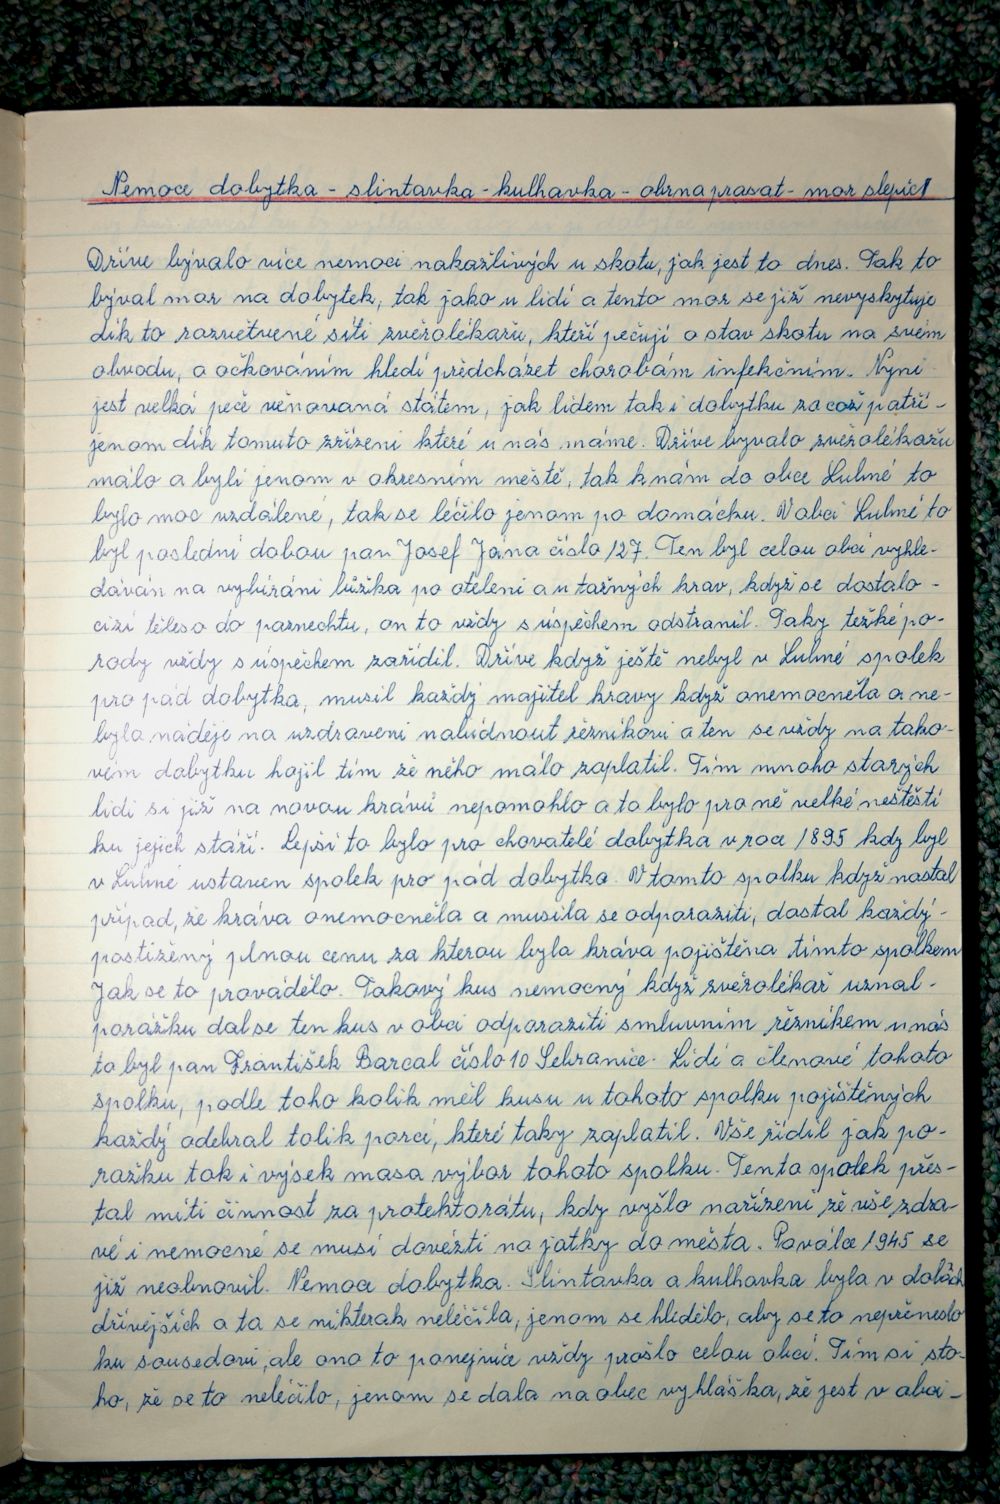 Nemoce dobytka - slintavka - kulhavka - obrna prasat - mor slepic
Dříve bývalo více nemoci nakažlivých u skotu, jak jest to dnes. Tak to
býval mor na dobytek, tak jako u lidí a tento mor se již nevyskytuje
dík to rozvětvené síti zvěrolékařu, kteří pečují o stav skotu na svém
obvodu, a očkováním hledí předcházet chorobám infekčním. Nyní
jest velká peče věnovaná státem, jak lidem tak i dobytku za což patří -
jenom dík tomuto zřízeni které u nás máme. Dříve byvalo zvěrolékařu
málo a byli jenom v okresním městě, tak k nám do obce Lubné to
bylo moc vzdálené, tak se léčilo jenom po domácku. V obci Lubné to
byl poslední dobou pan Josef Jána číslo 127. Ten byl celou obcí vyhle-
dáván na vybíráni lůžka po otelení a u tažných krav, když se dostalo -
cizí těleso do paznechtu, on to vždy s úspěchem odstranil. Taky težké po-
rody vždy s úspěchem zařídil. Dříve když ještě nebyl v Lubné spolek
pro pád dobytka, musil každý majitel kravy když onemocněla a ne-
byla náděje na uzdraveni nabídnout řézníkovi a ten se vždy na tako-
vém dobytku hojil tím že něho málo zaplatil. Tím mnoho starých
lidi si již na novou krávu nepomohlo a to bylo pro ně velké neštěstí
ku jejich stáří. Lepši to bylo pro chovatelé dobytka v roce 1895 kdy byl
v Lubné ustaven spolek pro pád dobytka. V tomto spolku když nastal
případ, že kráva onemocněla a musila se odporaziti, dostal každý -
postižený plnou cenu za kterou byla kráva pojištěna tímto spolkem
Jak se to provádělo. Takový kus nemocný když zvěrolékař uznal -
porážku dal se ten kus v obci odporaziti smluvním řézníkem u nás
to byl pan František Barcal číslo 10 Sebranice. Lidé a členové tohoto
spolku, podle toho kolik měl kusu u tohoto spolku pojištěných
každý odebral tolik porcí, které taky zaplatil. Vše řídil jak po-
ražku tak i výsek masa výbor tohoto spolku. Tento spolek přes-
tal míti činnost za protektorátu, kdy vyšlo nařízení že vše zdra-
vé i nemocné se musí dovézti na jatky do města. Po válce 1945 se
již neobnovil. Nemoce dobytka. Slintavka a kulhavka byla v dobách
dřívějších a ta se nikterak neléčila, jenom se hledělo, aby se to nepřeneslo
ku sousedovi, ale ono to ponejvíce vždy prošlo celou obcí. Tím si sto-
ho, že se to neléčilo, jenom se dala na obec vyhláška, že jest v obci -